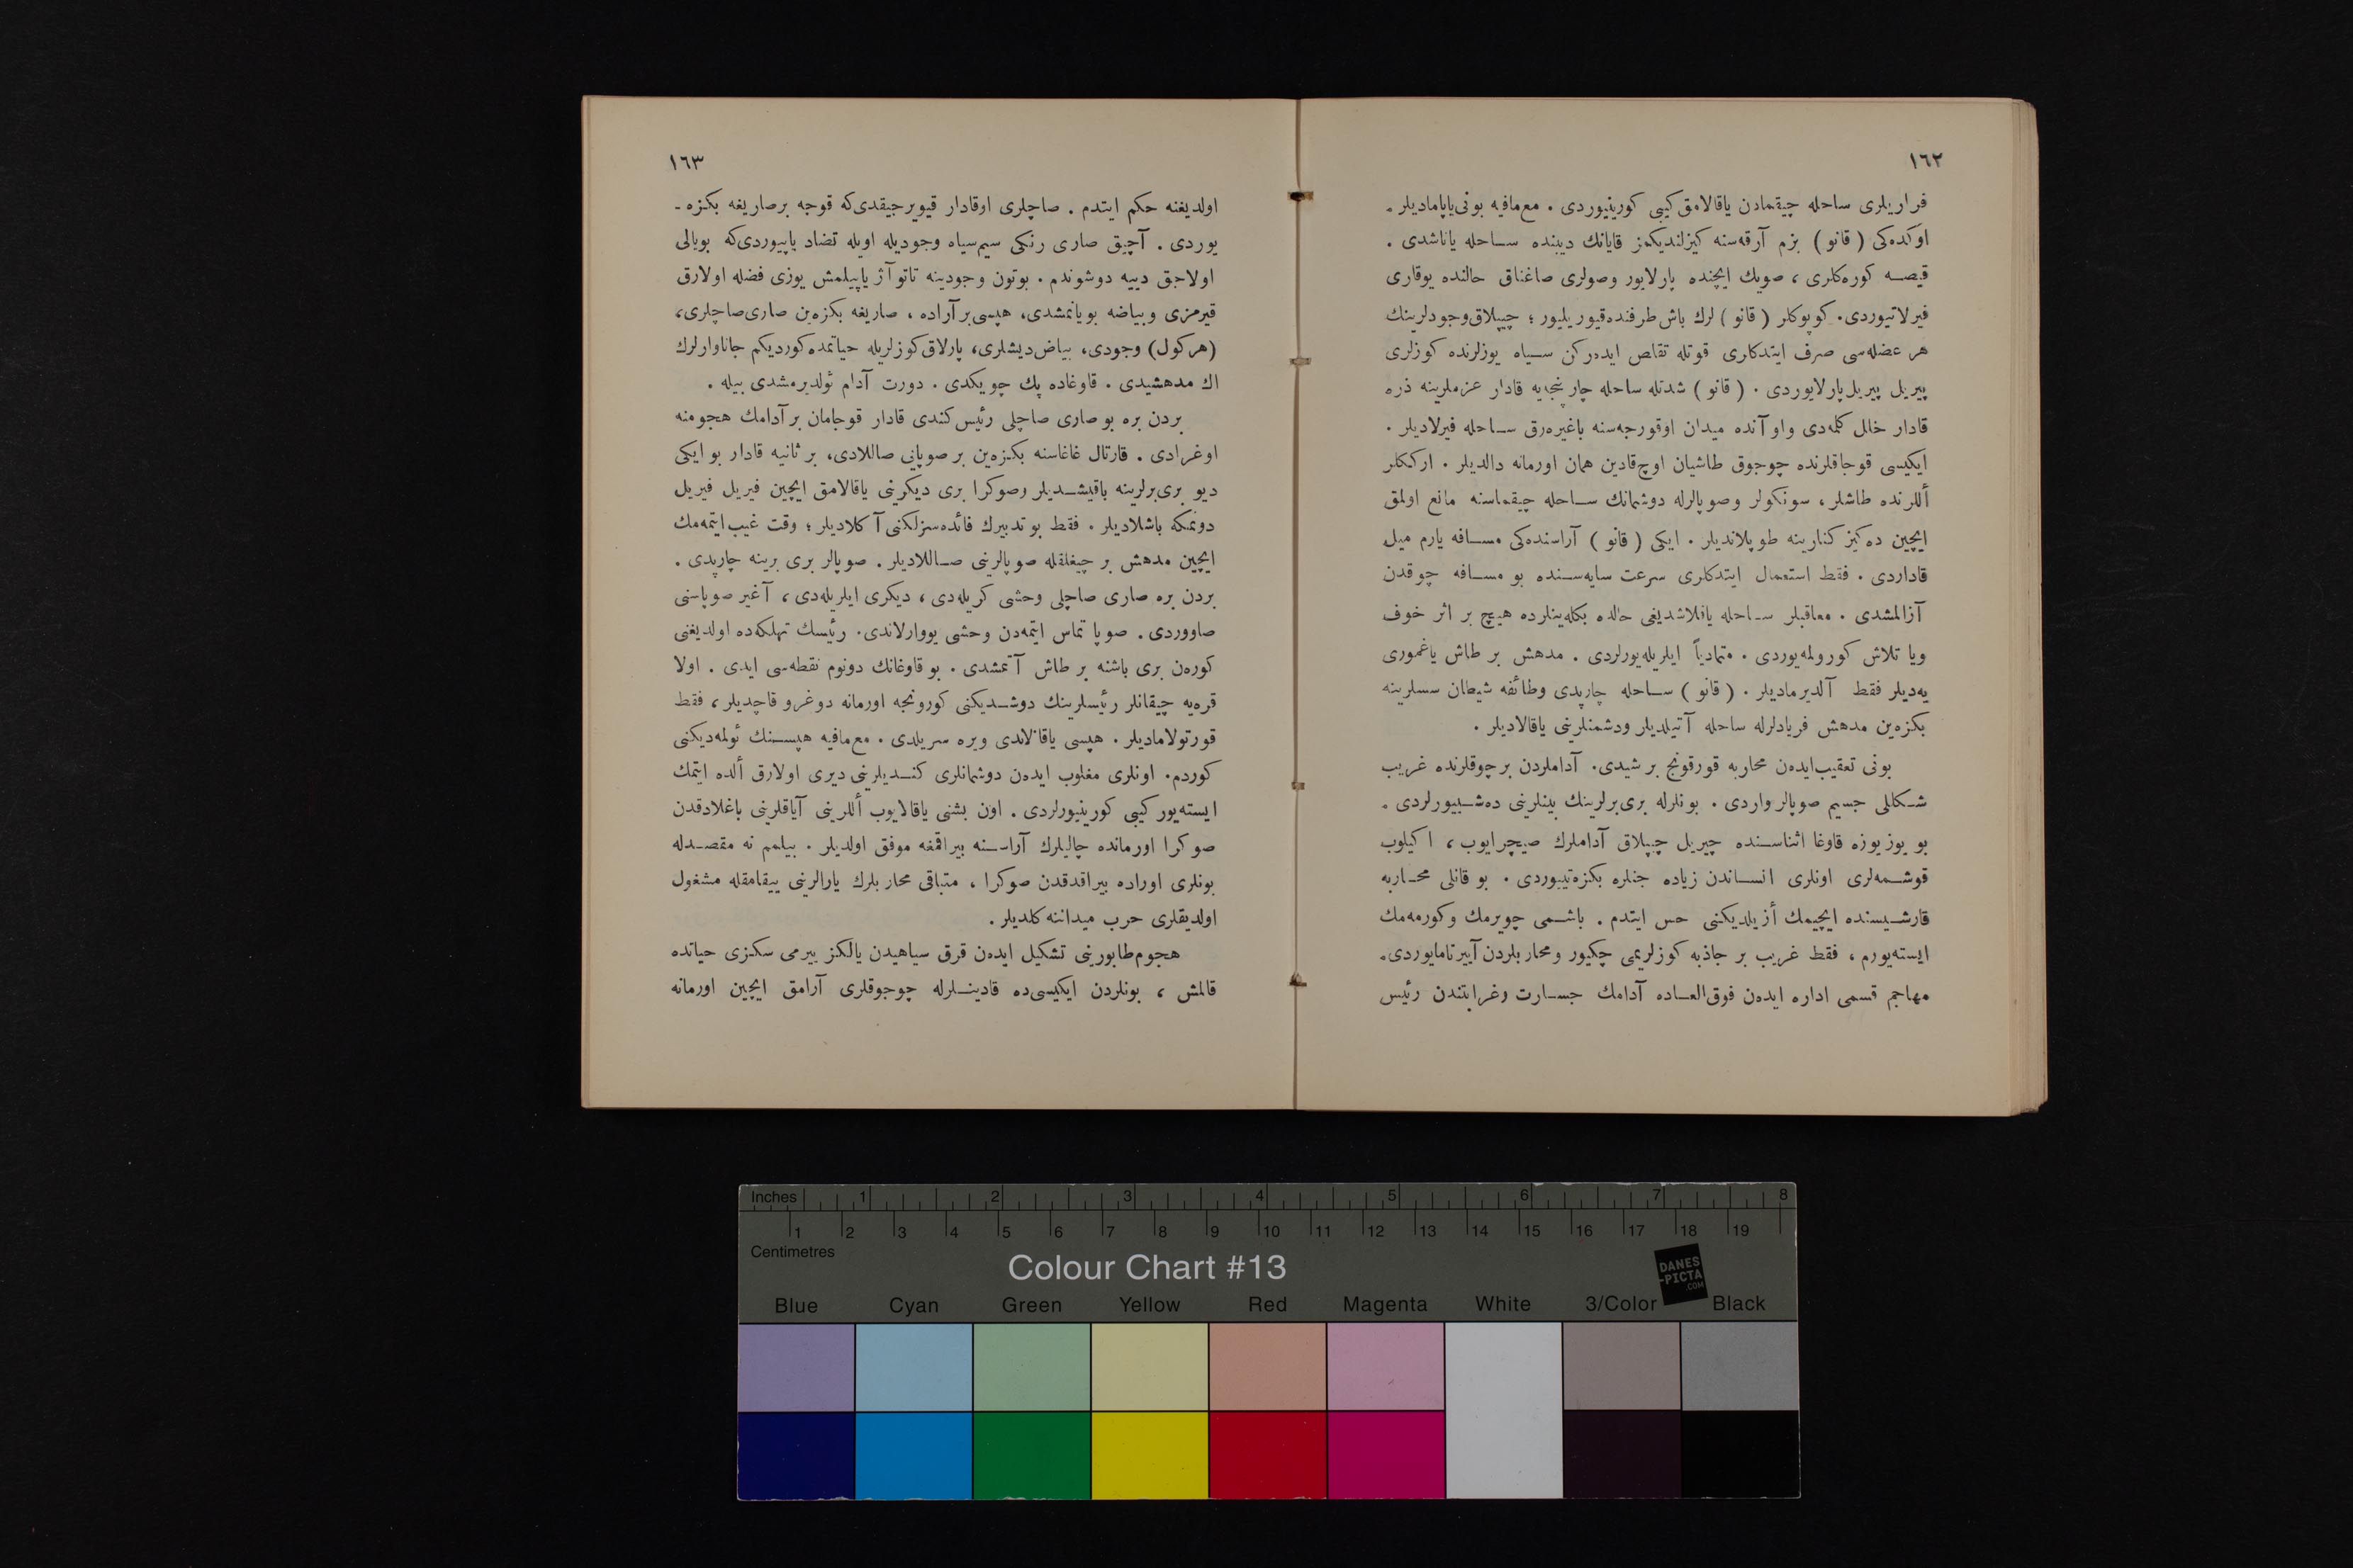 ١٦٢
فراریلری ساحله چیقمادن یاقالامق كیبی كورینیوردی . مع مافیه بونی یاپامادیلر .
اوكده‌كی ( قانو ) بزم آرقه‌سنه كیزلندیكمز قایانك دیبنده ساحله یاناشدی .
قیصه كوره‌كلری ، صویك ایچنده پارلایور وصولری صاغناق حالنده یوقاری
فیرلاتیوردی. كوپوكلر ( قانو ) لرك باش طرفنده قیوریلیور ؛ چیپلاق وجودلرینك
هر عضله‌سی صرف ایتدكلری قوتله تقلص ایدەركن سیاه یوزلرنده كوزلری
پیریل پیریل پارلایوردی . ( قانو ) شدتله ساحله چارپنجیه قادار عزملرینه ذره
قادار خلل كلمه‌دی واو آنده میدان اوقورجه‌سنه باغیره‌رق ساحله فیرلادیلر .
ایكیسی قوجاقلرنده چوجوق طاشیان اوچ قادین همان اورمانه دالدیلر . ارككلر
أللرنده طاشلر ، سونكولر وصوپالرله دوشمانك ساحله چیقماسنه مانع اولمق
ایچین ده‌كیز كنارینه طوپلاندیلر . ایكی ( قانو ) آراسنده‌كی مسافه یارم میل
قاداردی . فقط استعمال ایتدكلری سرعت سایه‌سنده بو مسافه چوقدن
آزالمشدی . معاقبلر ساحله یاقلاشدیغی حالده بكله‌ینلرده هیچ بر اثر خوف
ویا تلاش كورولمه‌یوردی . متمادیاً ایلریله‌یورلردی . مدهش بر طاش یاغموری
یه‌دیلر فقط آلدیرمادیلر . ( قانو ) ساحله چارپدی وطائفه شیطان سسلرینه
بكزه‌ین مدهش فریادلرله ساحله آتیلدیلر ودشمنلرینی یاقالادیلر .
بونی تعقیب ایدەن محاربه قورقونج بر شیدی. آداملردن بر چوقلرنده غریب
شكللی جسیم صوپالر واردی . بونلرله بری برلرینك بینلرینی ده‌شییورلردی .
بو یوز یوزه قاوغا اثناسنده چیریل چیپلاق آداملرك صیچرایوب ، اكیلوب
قوشمه‌لری اونلری انساندن زیاده جنلره بكزه‌تییوردی . بو قانلی محاربه
قارشیسنده ایچیمك أزیلدیكنی حس ایتدم . باشمی چویرمك وكورمه‌مك
ایسته‌یورم ، فقط غریب بر جاذبه كوزلریمی چكیور ومحاربلردن آییرتامایوردی.
مهاجم قسمی اداره ایدەن فوق‌العاده آدامك جسارت وغرابتندن رئیس
١٦٣
اولدیغنه حكم ایتدم . صاچلری اوقادار قیویرجیقدی كه قوجه بر صاریغه بكزه ـ
یوردی . آچیق صاری رنكی سیم سیاه وجودیله اویله تضاد یاپییوردی كه بویالی
اولاجق دییه دوشوندم . بوتون وجودینه تاتوآژ یاپیلمش یوزی فضله اولارق
قیرمزی وبیاضه بویانمشدی، هپسی بر آراده ، صاریغه بكزه‌ین صاری صاچلری،
(هركول) وجودی، بیاض دیشلری، پارلاق كوزلریله حیاتمده كوردیكم جاناوارلرك
اك مدهشیدی . قاوغاده پك چویكدی . دورت آدام ئولدیرمشدی بیله .
بردن بره بو صاری صاچلی رئیس كندی قادار قوجامان بر آدامك هجومنه
اوغرادی . قارتال غاغاسنه بكزه‌ین بر صوپایی صاللادی، بر ثانیه قادار بو ایكی
دیو بری برلرینه باقیشدیلر وصوكرا بری دیكرینی یاقالامق ایچین فیریل فیریل
دونمكه باشلادیلر . فقط بو تدبیرك فائده‌سزلكنی آكلادیلر ؛ وقت غیب ایتمه‌مك
ایچین مدهش بر چیغلقله صوپالرینی صاللادیلر . صوپالر بری برینه چارپدی .
بردن بره صاری صاچلی وحشی كریله‌دی ، دیكری ایلریله‌دی ، آغیر صوپاسنی
صاووردی . صوپا تماس ایتمه‌دن وحشی یووارلاندی. رئیسك تهلكه‌ده اولدیغنی
كوره‌ن بری باشنه بر طاش آتمشدی . بو قاوغانك دونوم نقطه‌سی ایدی . اولا
قره‌یه چیقانلر رئیسلرینك دوشدیكنی كورونجه اورمانه دوغرو قاچدیلر ، فقط
قورتولامادیلر . هپسی یاقالاندی ویره سریلدی . مع مافیه هپسنك ئولمه‌دیكنی
كوردم. اونلری مغلوب ایدەن دوشمانلری كندیلرینی دیری اولارق ألده ایتمك
ایسته‌یور كیبی كورینیورلردی . اون بشنی یاقالایوب أللرینی آیاقلرینی باغلادقدن
صوكرا اورمانده چالیلرك آراسنه بیراقمغه موفق اولدیلر . بیلمم نه مقصدله
بونلری اوراده بیراقدقدن صوكرا ، متباقی محاربلرك یارالرینی ییقامقله مشغول
اولدیقلری حرب میداننه كلدیلر .
هجوم طابورینی تشكیل ایدەن قرق سیاهیدن یالكز ییرمی سكزی حیاتده
قالمش ، بونلردن ایكیسی ده قادینلرله چوجوقلری آرامق ایچین اورمانه
Inches 1 2 3 4 5 6 7 8
1 2 3 4 5 6 7 8 9 10 11 12 13 14 15 16 17 18 19
Centimetres
Colour Chart #13
DANES
-PICTA
.COM
Blue Cyan Green Yellow Red Magenta White 3/Color Black